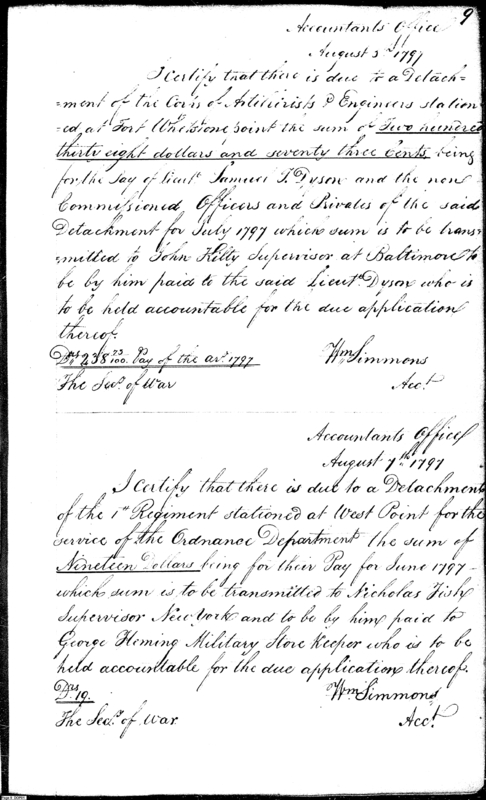 9
Accountants Office
August 3d 1797
I certify that there is due to a Detach=
=ment of the Corps of Artillerists & Engineers station
=ed at Fort Whetstone point the sum of Two hundred
thirty eight dollars and seventy three Cents being
for the Pay of Lieut. Samuel T. Dyson and the non
Commissioned Officers and Privates of the said
Detachment for July 1797 which sum is to be trans=
=mitted to John Kilty Supervisor at Baltimore to
be by him paid to the said Lieut. Dyson who is
to be held accountable for the due application
thereof.
Drs 238 73/100. Pay of the ar. 1797
Wm Simmons
The Secy. of War
Acct.
Accountants Office
August 7th. 1797
I certify that there is due to a Detachment
of the 1st Regiment stationed at West Point for the
service of the Ordnance Department the sum of
Nineteen Dollars being for their Pay for June 1797 -
which sum is to be transmitted to Nicholas Fish
Supervisor New York and to be by him paid to
George Fleming Military Store Keeper who is to be
held accountable for the due application thereof.
Drs 19.
Wm Simmons
The Secy. of War
Acct.